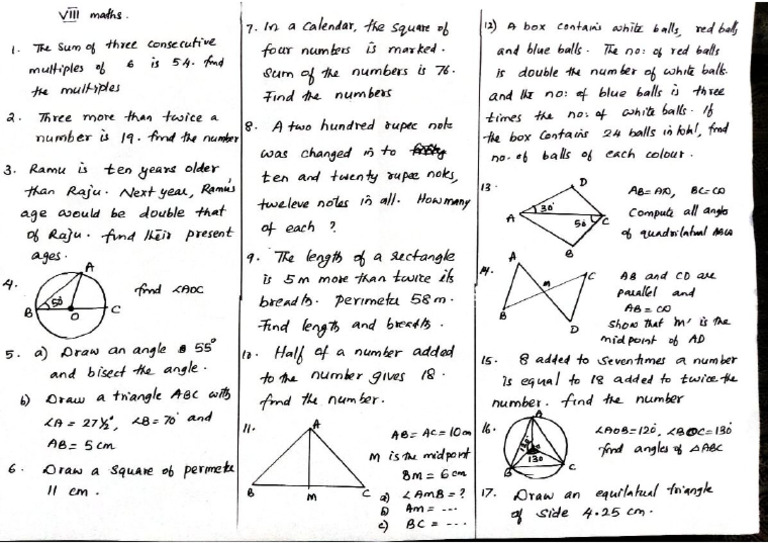 VIII maths.
1. The sum of three consecutive
multiples of 6 is 54. find
the multiples
2. Three more than twice a
number is 19. find the number
3. Ramu is ten years older
than Raju. Next year, Ramu's
age would be double that
of Raju. find their present
ages.
4.
A
50°
B
O
C
find ∠AOC
5. a) Draw an angle 55°
and bisect the angle.
b) Draw a triangle ABC with
∠A = 27½°, ∠B = 70° and
AB = 5cm
6. Draw a square of perimeter
11 cm.
7. In a calendar, the square of
four numbers is marked.
Sum of the numbers is 76.
Find the numbers
8. A two hundred rupee note
was changed in to
ten and twenty rupee notes,
tweleve notes in all. How many
of each ?
9. The length of a rectangle
is 5m more than twice its
breadth. perimeter 58m.
Find length and breadth.
10. Half of a number added
to the number gives 18.
find the number.
11.
A
B
M
C
AB = AC = 10cm
M is the midpoint
BM = 6cm
a) ∠AMB = ?
b) AM = ---
c) BC = ---
12) A box contains white balls, red balls
and blue balls. The no: of red balls
is double the number of white balls.
and the no: of blue balls is three
times the no: of white balls. If
the box contains 24 balls in total, find
no. of balls of each colour.
13.
D
A
30°
50°
C
B
AB = AD, BC = CD
Compute all angles
of quadrilateral ABCD
14.
A
C
M
B
D
AB and CD are
parallel and
AB = CD
show that 'M' is the
midpoint of AD
15. 8 added to seven times a number
is equal to 18 added to twice the
number. find the number
16.
A
120
130
B
C
∠AOB = 120, ∠BOC = 130°
find angles of △ABC
17. Draw an equilateral triangle
of side 4.25 cm.